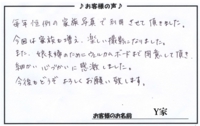 お客様の声
毎年恒例の家族写真で利用させて頂きました。
今回は家族も増え、楽しい撮影になりました。
また、娘夫婦のためにウェルカムボードまで用意して頂き
細かい心づかいに感激しました。
今後もどうぞよろしくお願い致します。
お客様のお名前 Y家